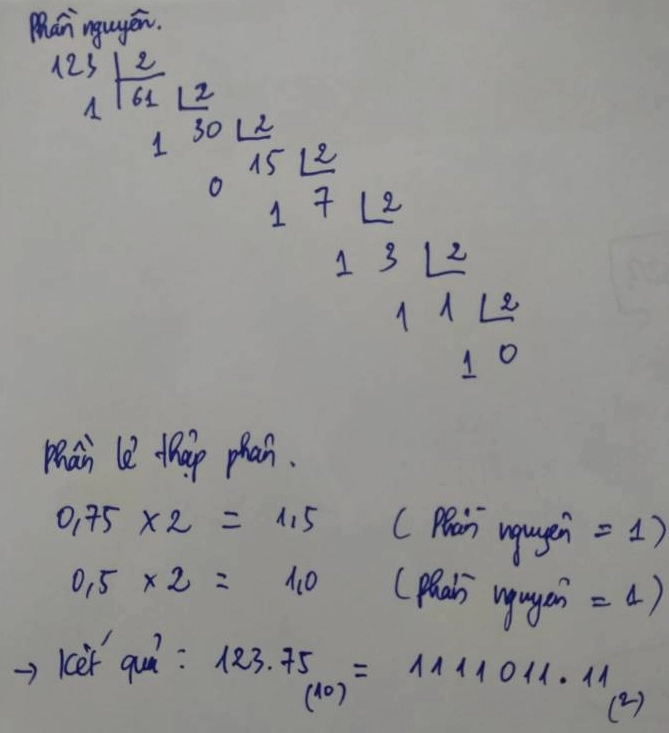 Phần nguyên.
123 2
1 61 2
1 30 2
0 15 2
1 7 2
1 3 2
1 1 2
1 0
Phần lẻ thập phân.
0,75 x 2 = 1,5 (Phần nguyên = 1)
0,5 x 2 = 1,0 (phần nguyên = 1)
→ Kết quả: 123.75 (10) = 1111011.11 (2)